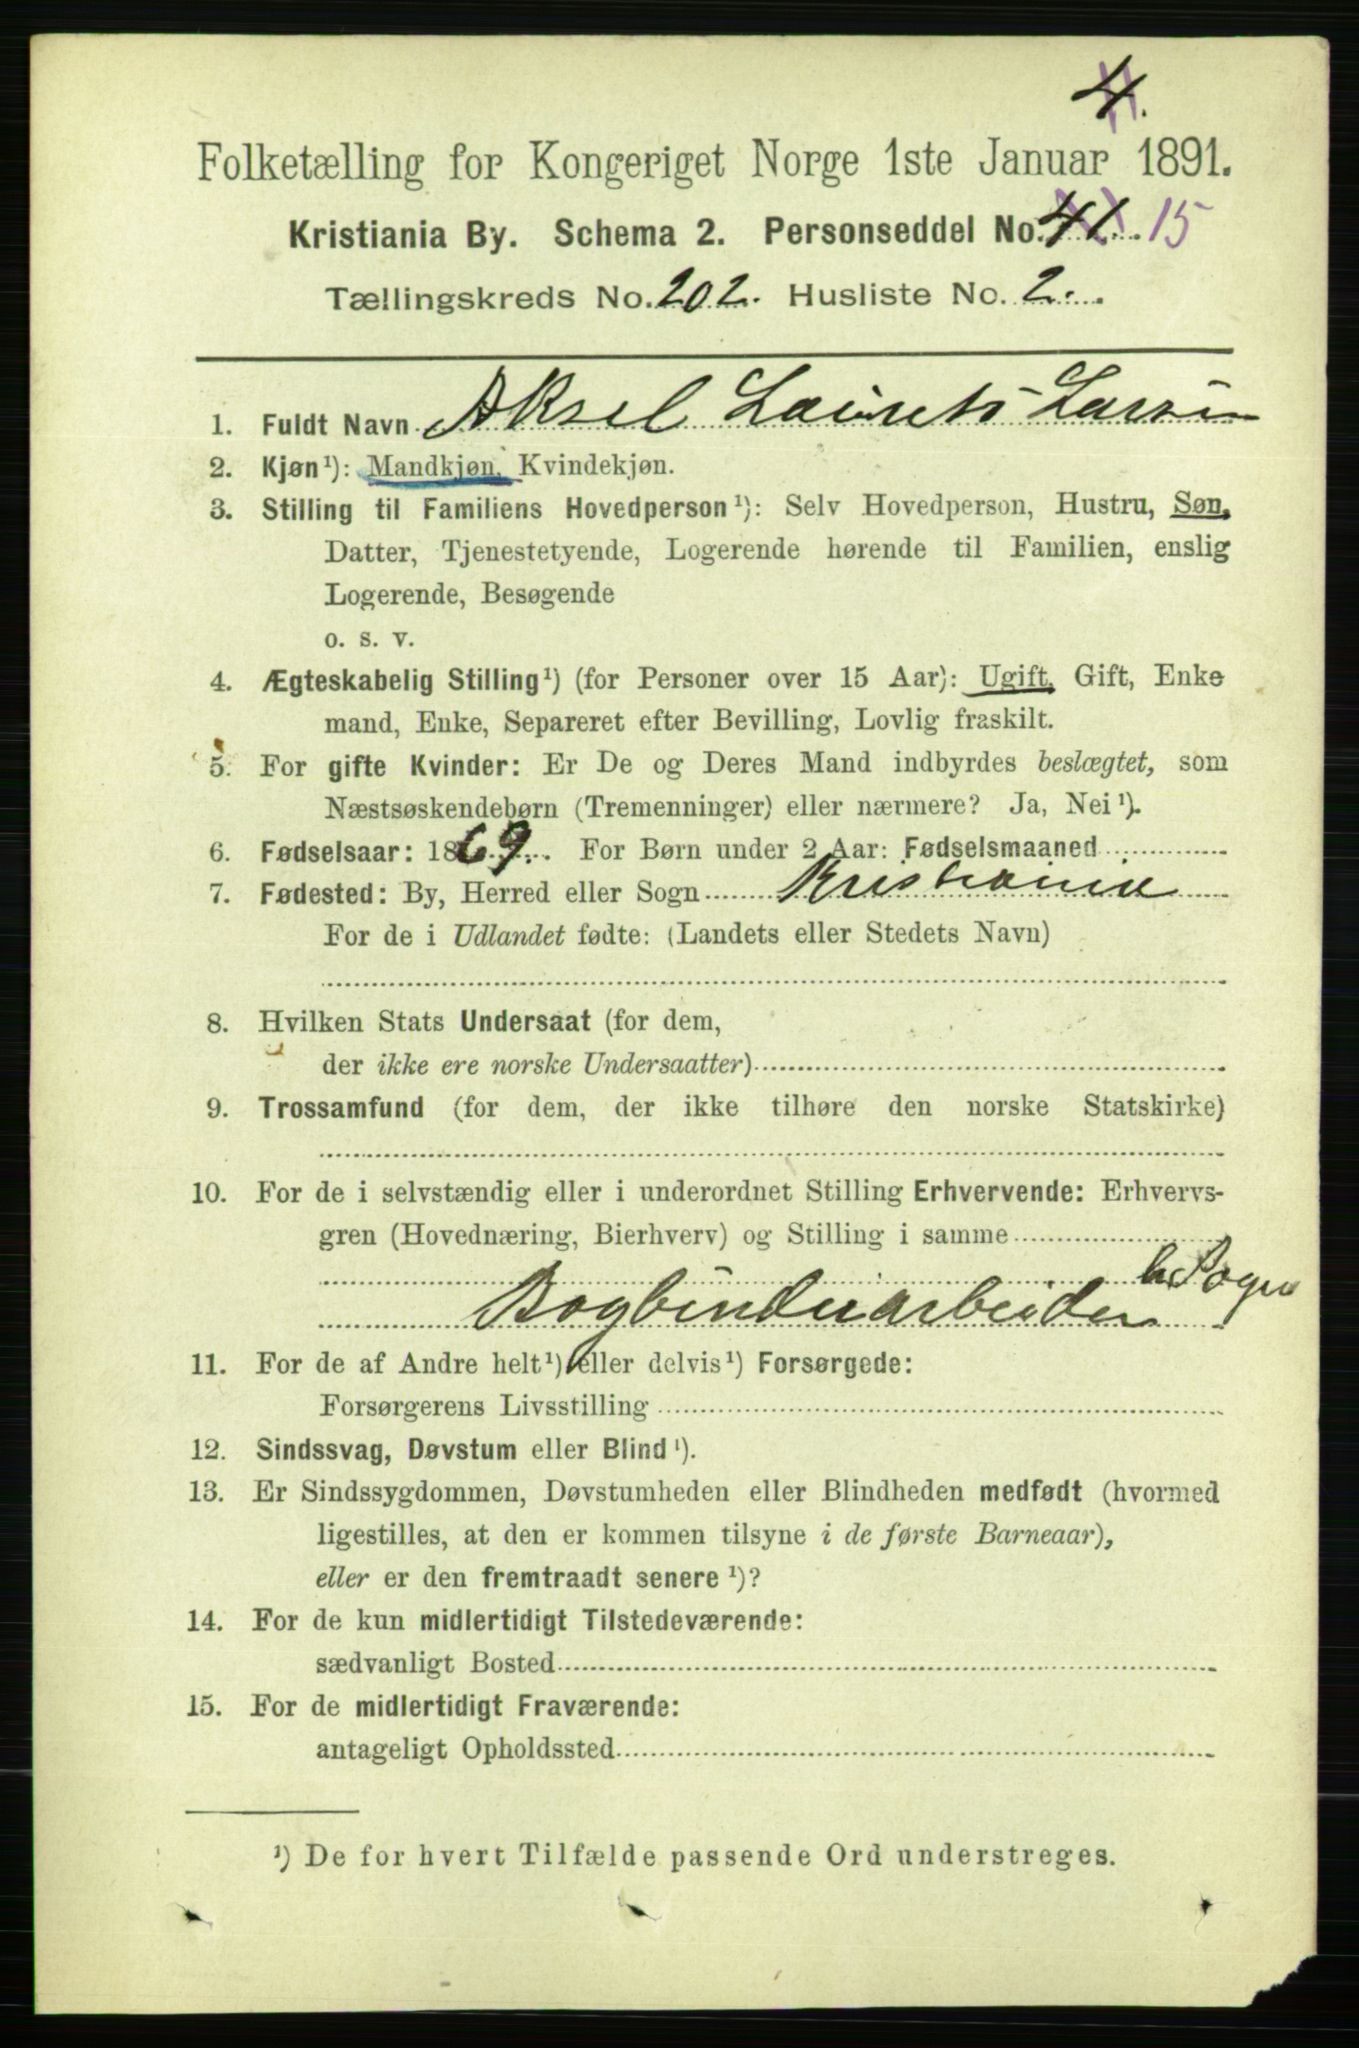 4.
Folketælling for Kongeriget Norge 1ste Januar 1891.
Kristiania By. Schema 2. Personseddel No. 41. 15
Tællingskreds No. 202. Husliste No. 2.
1. Fuldt Navn Aksel Laurets Larsen
2. Kjøn¹): Mandkjøn, Kvindekjøn.
3. Stilling til Familiens Hovedperson¹): Selv Hovedperson, Hustru, Søn,
Datter, Tjenestetyende, Logerende hørende til Familien, enslig
Logerende, Besøgende
o. s. v.
4. Ægteskabelig Stilling¹) (for Personer over 15 Aar): Ugift, Gift, Enke
mand, Enke, Separeret efter Bevilling, Lovlig fraskilt.
5. For gifte Kvinder: Er De og Deres Mand indbyrdes beslægtet, som
Næstsøskendebørn (Tremenninger) eller nærmere? Ja, Nei¹).
6. Fødselsaar: 1869. For Børn under 2 Aar: Fødselsmaaned
7. Fødested: By, Herred eller Sogn Kristiania
For de i Udlandet fødte: (Landets eller Stedets Navn)
8. Hvilken Stats Undersaat (for dem,
der ikke ere norske Undersaatter)
9. Trossamfund (for dem, der ikke tilhøre den norske Statskirke)
10. For de i selvstændig eller i underordnet Stilling Erhvervende: Erhvervs-
gren (Hovednæring, Bierhverv) og Stilling i samme
Bogbinderarbeider
11. For de af Andre helt¹) eller delvis¹) Forsørgede:
Forsørgerens Livsstilling
12. Sindssvag, Døvstum eller Blind¹).
13. Er Sindssygdommen, Døvstumheden eller Blindheden medfødt (hvormed
ligestilles, at den er kommen tilsyne i de første Barneaar),
eller er den fremtraadt senere¹)?
14. For de kun midlertidigt Tilstedeværende:
sædvanligt Bosted
15. For de midlertidigt Fraværende:
antageligt Opholdssted
¹) De for hvert Tilfælde passende Ord understreges.